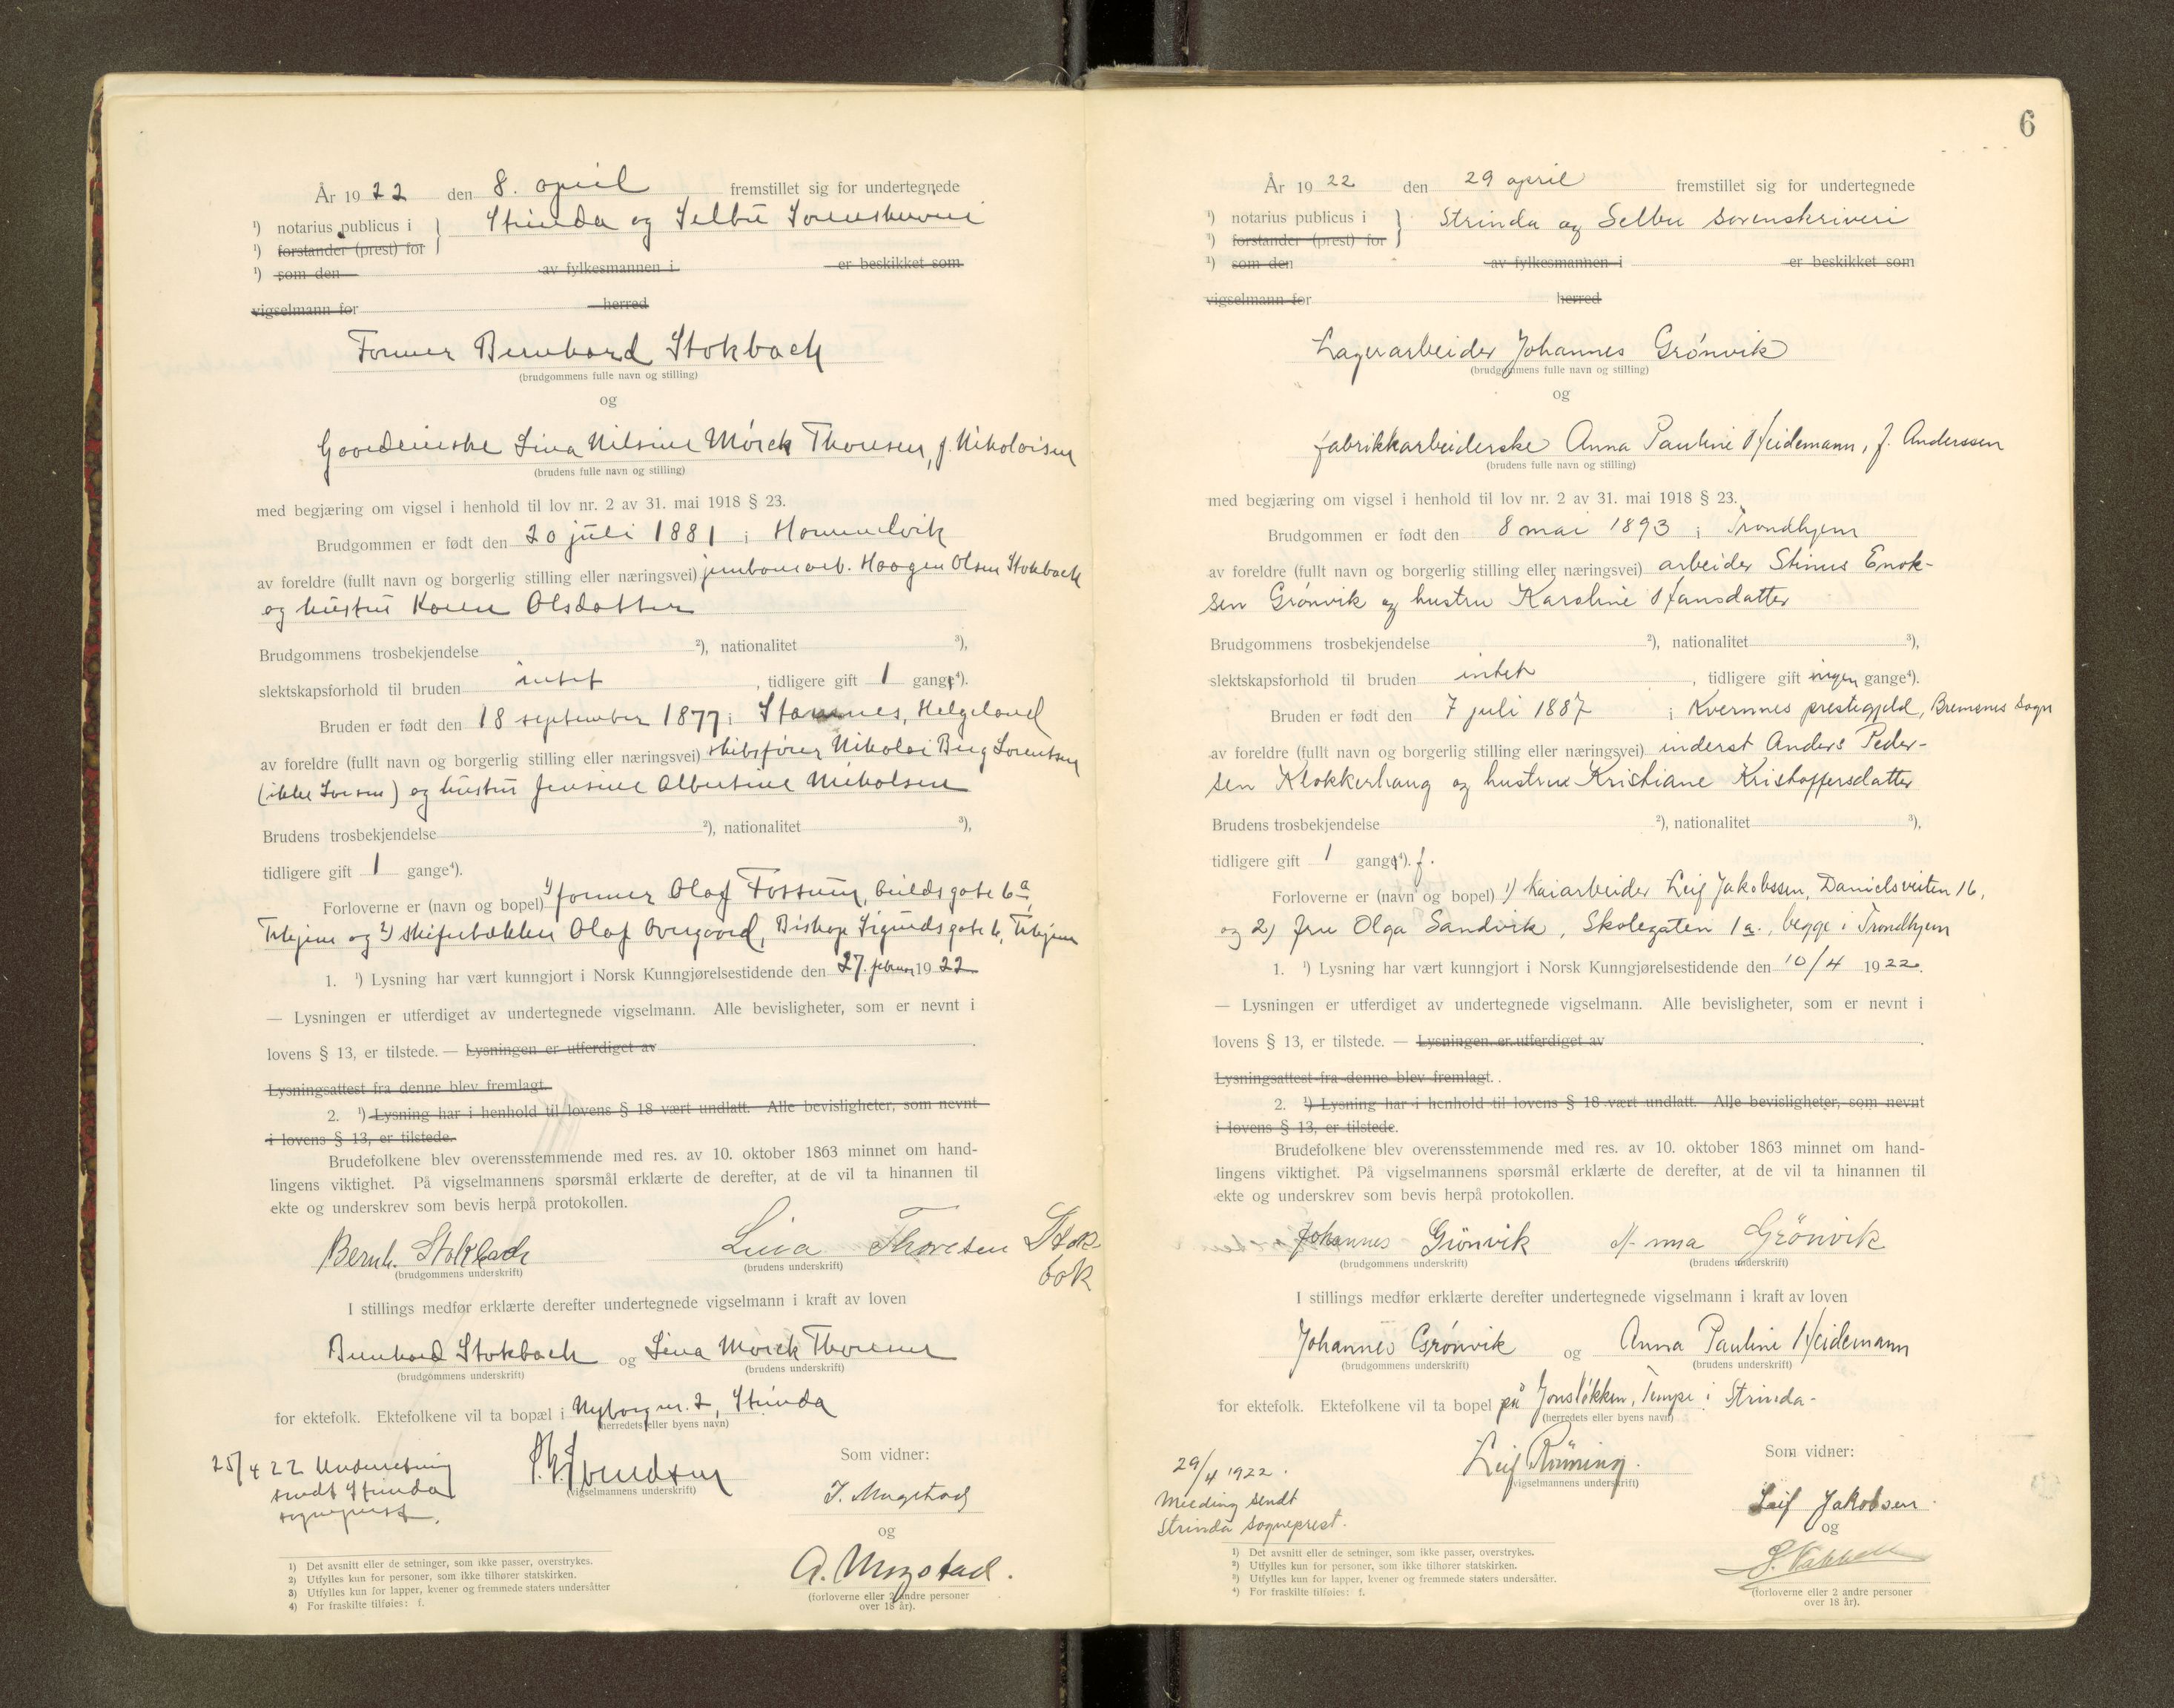 År 1922 den 8. april fremstillet sig for undertegnede
¹) notarius publicus i } Strinda og Selbu Sorenskriveri
¹) forstander (prest) for
¹) som den av fylkesmannen i er beskikket som
vigselmann for herred
Former Bernhard Stokbach
(brudgommens fulle navn og stilling)
og
Lina Nilsine Mörck Thoresen, f. Nikolaisen
(brudens fulle navn og stilling)
med begjæring om vigsel i henhold til lov nr. 2 av 31. mai 1918 § 23.
Brudgommen er født den 20 juli 1881 i Hommelvik
av foreldre (fullt navn og borgerlig stilling eller næringsvei) Haagen Olsen Stokbach
og hustru Karen Olsdatter
Brudgommens trosbekjendelse ²), nationalitet ³),
slektskapsforhold til bruden intet, tidligere gift 1 gang⁴).
Bruden er født den 18 september 1877 i Stamnes, Helgeland
av foreldre (fullt navn og borgerlig stilling eller næringsvei) skibsfører Nikolai Berg Lorentsen
og hustru Jensine Albertine Nicholsen
Brudens trosbekjendelse ²), nationalitet ³),
tidligere gift 1 gange⁴).
Forloverne er (navn og bopel) ¹) former Olaf Fossum, gate 6a,
Trhjem og ²) Olaf Overgaard, Biskop Sigurds gate 6, Trhjem
1. ¹) Lysning har vært kunngjort i Norsk Kunngjørelsestidende den 27. februar 1922
— Lysningen er utferdiget av undertegnede vigselmann. Alle bevisligheter, som er nevnt i
lovens § 13, er tilstede. — Lysningen er utferdiget av .
Lysningsattest fra denne blev fremlagt.
2. ¹) Lysning har i henhold til lovens § 18 vært undlatt. Alle bevisligheter, som nevnt
i lovens § 13, er tilstede.
Brudefolkene blev overensstemmende med res. av 10. oktober 1863 minnet om hand-
lingens viktighet. På vigselmannens spørsmål erklærte de derefter, at de vil ta hinannen til
ekte og underskrev som bevis herpå protokollen.
Bernh. Stokbach Lina Thoresen Stok-
bok
(brudgommens underskrift) (brudens underskrift)
I stillings medfør erklærte derefter undertegnede vigselmann i kraft av loven
Bernhard Stokbach og Lina Mörck Thoresen
(brudgommens underskrift) (brudens underskrift)
for ektefolk. Ektefolkene vil ta bopæl i Nyborg nr. 2, Strinda
(herredets eller byens navn)
25/4 22 Underretning
sendt Strinda
sogneprest.
(vigselmannens underskrift)
Som vidner:
og
A. Mogstad.
(forloverne eller 2 andre personer
over 18 år).
1) Det avsnitt eller de setninger, som ikke passer, overstrykes.
2) Utfylles kun for personer, som ikke tilhører statskirken.
3) Utfylles kun for lapper, kvener og fremmede staters undersåtter
4) For fraskilte tilføies: f.
6
År 1922 den 29 april fremstillet sig for undertegnede
¹) notarius publicus i } Strinda og Selbu sorenskriveri
¹) forstander (prest) for
¹) som den av fylkesmannen i er beskikket som
vigselmann for herred
Lagerarbeider Johannes Grønvik
(brudgommens fulle navn og stilling)
og
fabrikkarbeiderske Anna Pauline Heidemann, f. Anderssen
(brudens fulle navn og stilling)
med begjæring om vigsel i henhold til lov nr. 2 av 31. mai 1918 § 23.
Brudgommen er født den 8 mai 1893 i Trondhjem
av foreldre (fullt navn og borgerlig stilling eller næringsvei) arbeider Stinus Enok-
sen Grønvik og hustru Karoline Hansdatter
Brudgommens trosbekjendelse ²), nationalitet ³),
slektskapsforhold til bruden intet, tidligere gift ingen gange⁴).
Bruden er født den 7 juli 1887 i Kvernnes prestegjeld, Bremsnes sogn
av foreldre (fullt navn og borgerlig stilling eller næringsvei) inderst Anders Peder-
sen Klokkerhaug og hustru Kristiane Kristoffersdatter
Brudens trosbekjendelse ²), nationalitet ³),
tidligere gift 1 gang⁴). f.
Forloverne er (navn og bopel) 1) kaiarbeider Leif Jakobssen, Danielsveiten 16,
og 2) fru Olga Sandvik, Skolegaten 1a., begge i Trondhjem
1. ¹) Lysning har vært kunngjort i Norsk Kunngjørelsestidende den 10/4 1922.
— Lysningen er utferdiget av undertegnede vigselmann. Alle bevisligheter, som er nevnt i
lovens § 13, er tilstede. — Lysningen er utferdiget av .
Lysningsattest fra denne blev fremlagt.
2. ¹) Lysning har i henhold til lovens § 18 vært undlatt. Alle bevisligheter, som nevnt
i lovens § 13, er tilstede.
Brudefolkene blev overensstemmende med res. av 10. oktober 1863 minnet om hand-
lingens viktighet. På vigselmannens spørsmål erklærte de derefter, at de vil ta hinannen til
ekte og underskrev som bevis herpå protokollen.
Johannes Grönvik Anna Grönvik
(brudgommens underskrift) (brudens underskrift)
I stillings medfør erklærte derefter undertegnede vigselmann i kraft av loven
Johannes Grønvik og Anna Pauline Heidemann
(brudgommens underskrift) (brudens underskrift)
for ektefolk. Ektefolkene vil ta bopel på Jonsløkken, Tempe i Strinda.
(herredets eller byens navn)
29/4 1922.
Melding sendt
Strinda sogneprest.
Leif Röning.
(vigselmannens underskrift)
Som vidner:
Leif Jakobsen.
og
(forloverne eller 2 andre personer
over 18 år).
¹) Det avsnitt eller de setninger, som ikke passer, overstrykes.
²) Utfylles kun for personer, som ikke tilhører statskirken.
³) Utfylles kun for lapper, kvener og fremmede staters undersåtter.
⁴) For fraskilte tilføies: f.